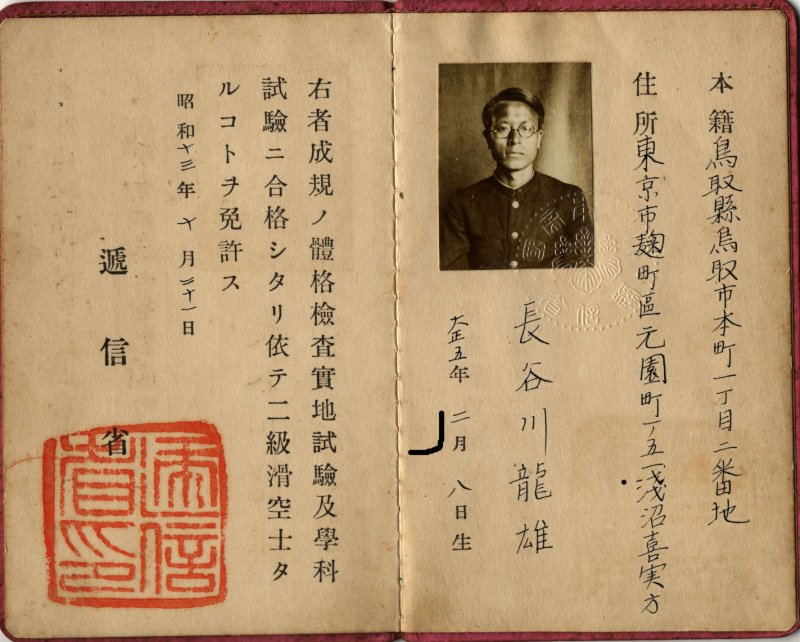 本籍鳥取縣鳥取市本町一丁目二番地
住所東京市麹町區元園町一ノ五一淺沼喜実方
長谷川龍雄
大正五年二月八日生
右者成規ノ體格檢査實地試驗及學科
試驗ニ合格シタリ依テ二級滑空士タ
ルコトヲ免許ス
昭和十三年十月三十一日
遞信省
遞信
省印